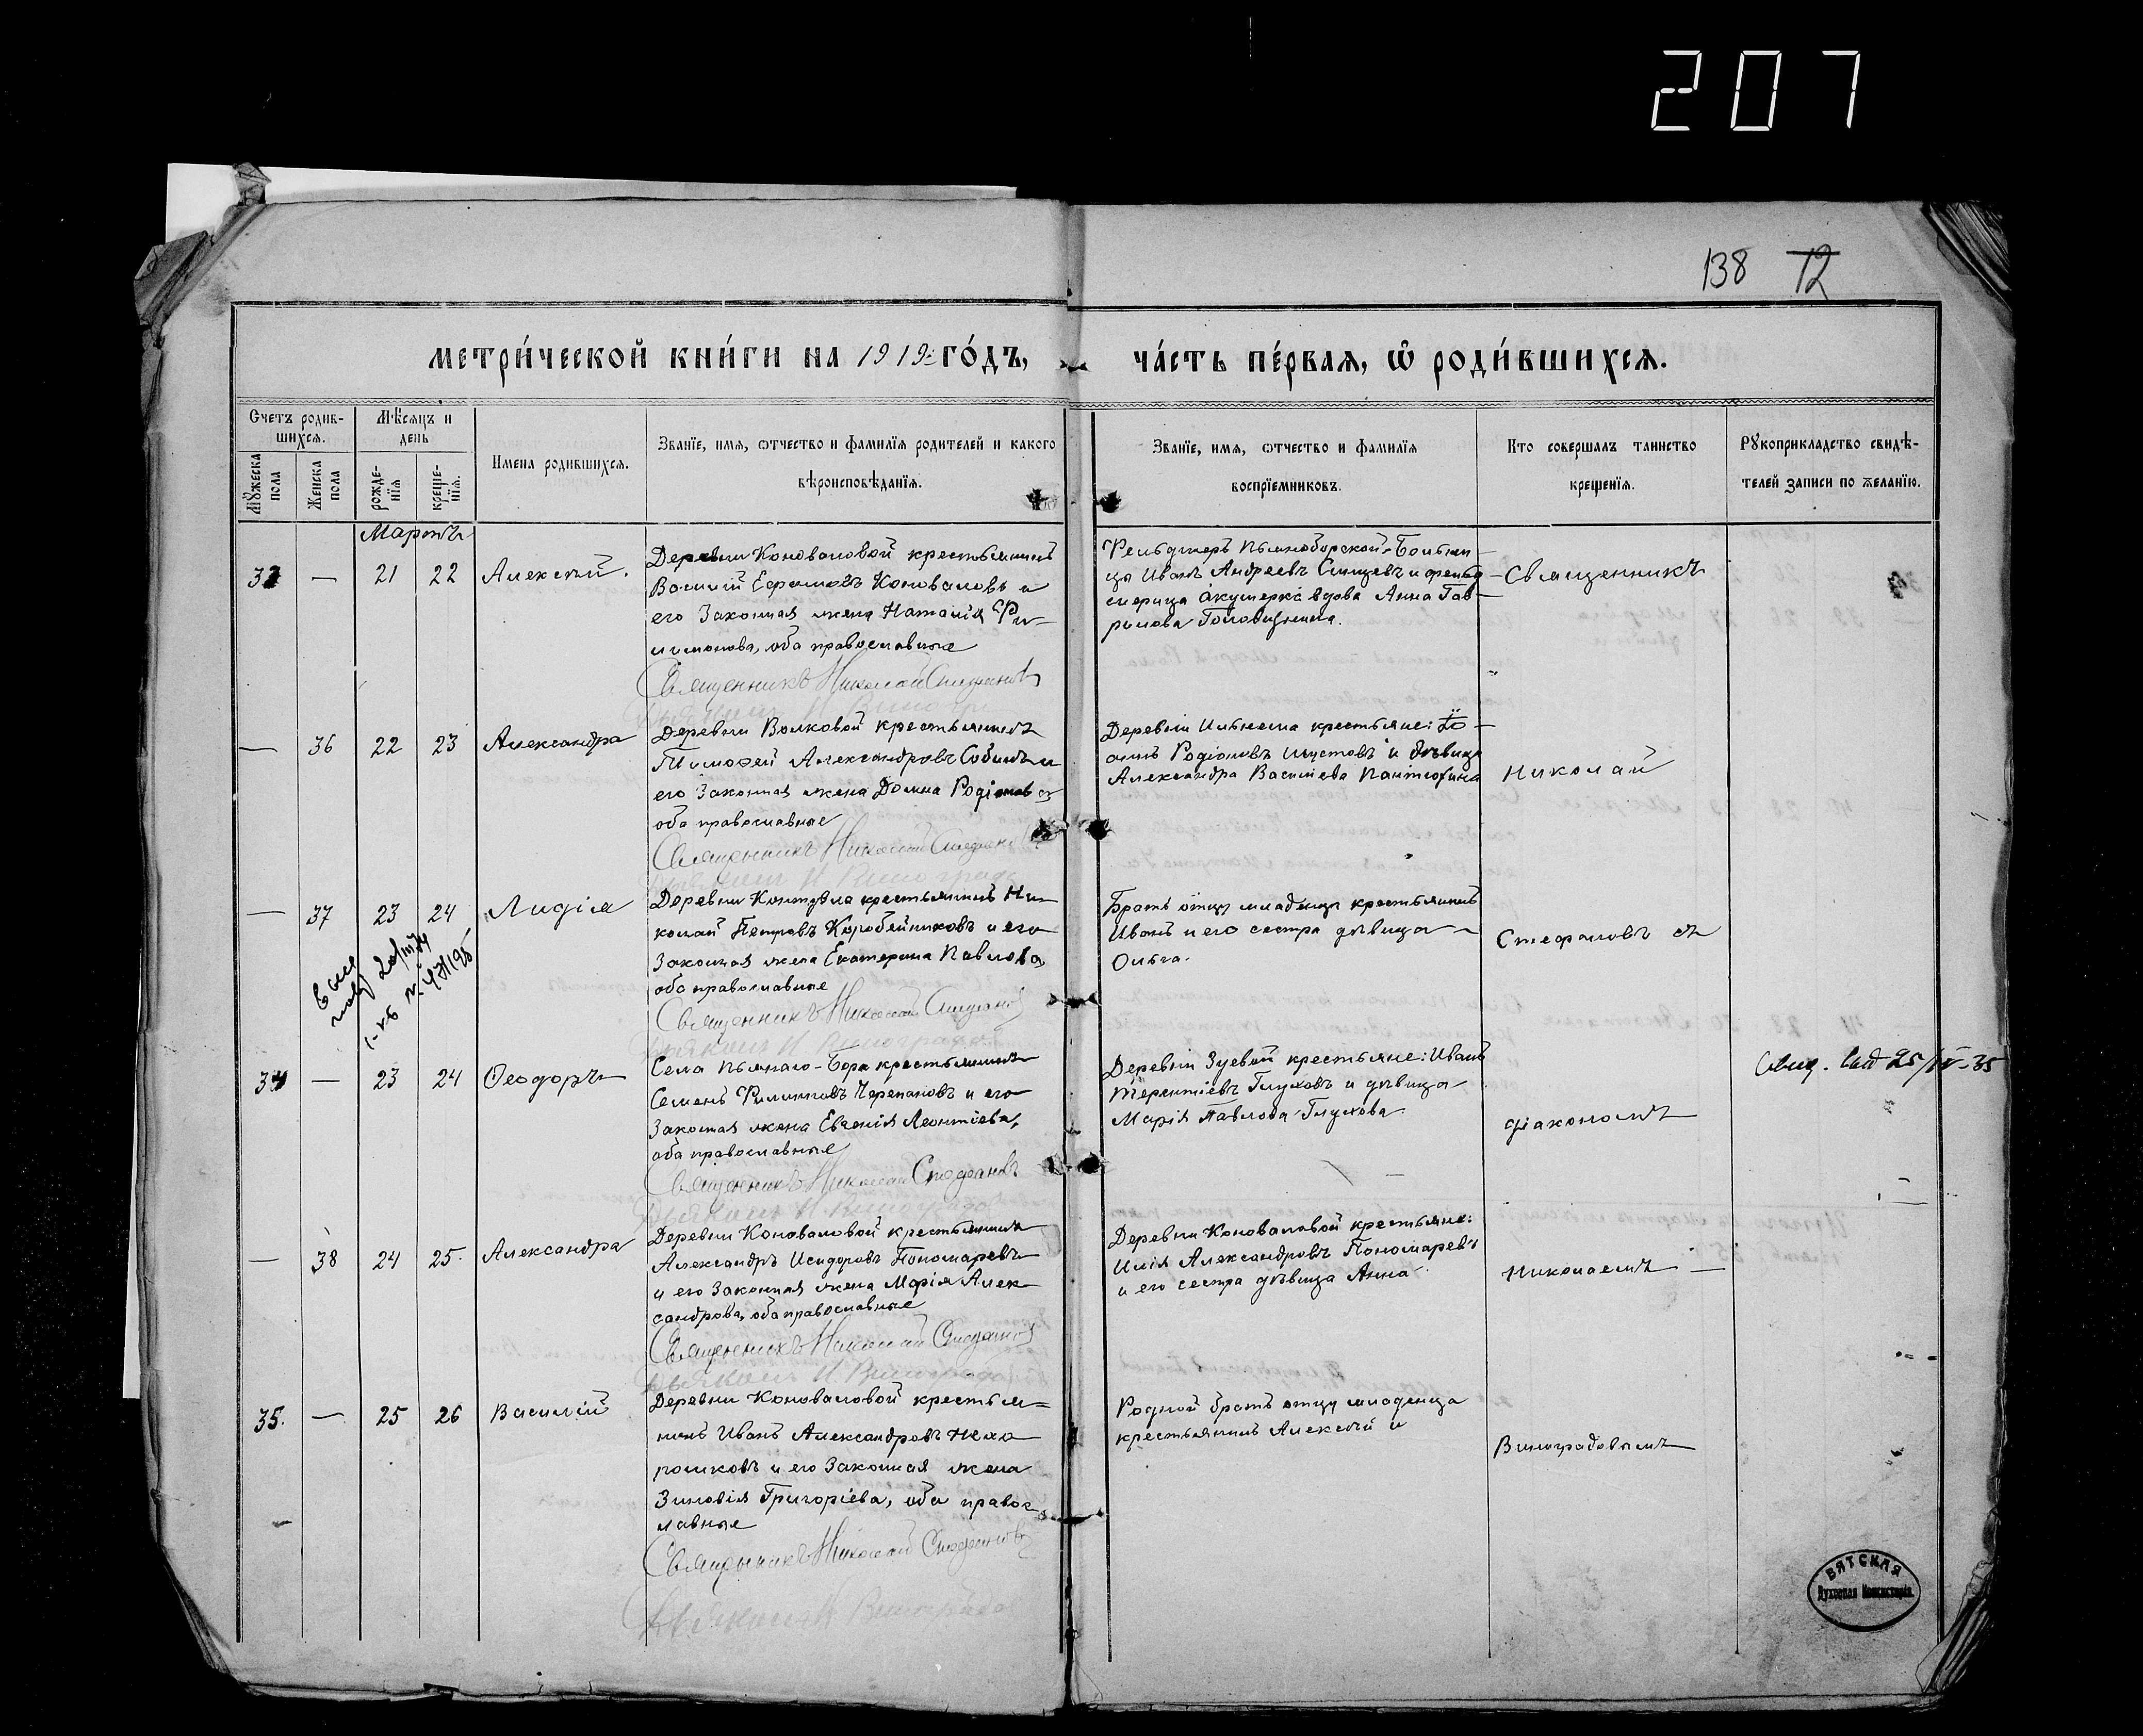 207
138 12
Метри́ческой кни́ги на 1919 го́дъ,
ча́сть пе́рвая, ѡ҆ роди́вшихся.
Счетъ родив-
шихся.
Мѣсяцъ и
день
Мꙋжеска
пола
Женска
пола
рожде-
нїя
креще-
нїя.
Имена родившихся.
Званїе, имя, ѿтчество и фамилїя родителей и какого
вѣроисповѣданїя.
Званїе, имя, ѿтчество и фамилїя
воспрїемниковъ.
Кто совершалъ таинство
крещенїя.
Рꙋкоприкладство свидѣ-
телей записи по желанїю.
Мартъ
— 21 22 Алексѣй.
Деревни Коноваловой крестьянинъ
Василій Ефремовъ Коноваловъ и
его Законная жена Наталія Фи-
лимонова, оба православные
Священникъ Николай Стефановъ
Фельдшеръ Пьяноборской Больни-
цы Иванъ Андреевъ и фельд-
шерица акушерка вдова Анна Гав-
рилова Головизнина.
Священникъ
— 36 22 23 Александра
Деревни Волковой крестьянинъ
Тимоѳей Александровъ Собинъ и
его Законная жена Домна Родіонова
оба православные
Священникъ Николай Стефановъ
Деревни Ильнеша крестьяне: Іо-
аннъ Родіоновъ Шустовъ и дѣвица
Александра Васильева Пантюхина
Николай
— 37 23 24 Лидія
Деревни крестьянинъ Ни-
колай Петровъ Коробейниковъ и его
Законная жена Екатерина Павлова,
оба православные
Священникъ Николай Стефановъ
Братъ отцу младенца крестьянинъ
Иванъ и его сестра дѣвица
Ольга.
Стефановъ съ
34 — 23 24 Ѳеодоръ
Села Пьянаго-Бора крестьянинъ
Семенъ Филипповъ Черепановъ и его
Законная жена Евгенія Леонтіева,
оба православные
Священникъ Николай Стефановъ
Деревни Зуевой крестьяне: Иванъ
Терентіевъ Глуховъ и дѣвица
Марія Павлова Глухова.
діакономъ
25/IV-35
— 38 24 25. Александра
Деревни Коноваловой крестьянинъ
Александръ Исидоровъ Пономаревъ
и его Законная жена Марія Алек
сандрова, оба православные
Священникъ Николай Стефановъ
Деревни Коноваловой крестьяне:
Илія Александровъ Пономаревъ
и его сестра дѣвица Анна
Николаемъ
35. — 25 26 Василій
Деревни Коноваловой крестья-
нинъ Иванъ Александровъ Нехо
рошковъ и его Законная жена
Зиновія Григоріева, оба правос-
лавные
Священникъ Николай Стефановъ
Діаконъ Н Виноградовъ
Родной братъ отцу младенца
крестьянинъ Алексѣй и
Виноградовымъ
ВЯТСКАЯ
Духовная Консисторія.